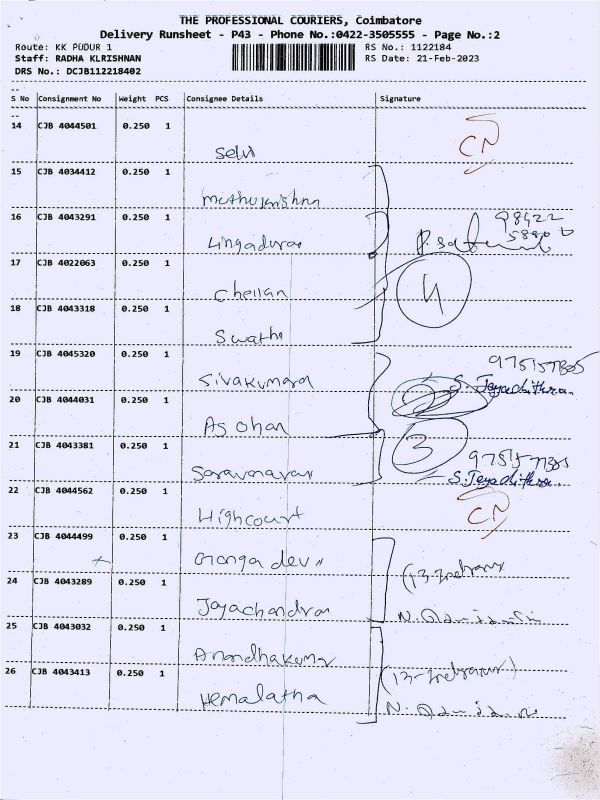 THE PROFESSIONAL COURIERS, Coimbatore
Delivery Runsheet - P43 - Phone No.:0422-3505555 - Page No.:2
Route: KK PUDUR 1
RS No.: 1122184
Staff: RADHA KLRISHNAN
RS Date: 21-Feb-2023
DRS No.: DCJB112218402
S No Consignment No Weight PCS Consignee Details Signature
14 CJB 4044501 0.250 1
Selvi CN
15 CJB 4034412 0.250 1
Muthukrishnn
16 CJB 4043291 0.250 1
Lingadurai
17 CJB 4022063 0.250 1
Chellan 4
18 CJB 4043318 0.250 1
Swathi
19 CJB 4045320 0.250 1
Sivakumara S. Jayadithran.
20 CJB 4044031 0.250 1
Asohan
21 CJB 4043381 0.250 1 3
Saravanavan S. Jayadithran.
22 CJB 4044562 0.250 1
Highcourt CN
23 CJB 4044499 0.250 1
Ganga devi
24 CJB 4043289 0.250 1
Jayachandran
25 CJB 4043032 0.250 1
Anandhakumar
26 CJB 4043413 0.250 1
Hemalatha